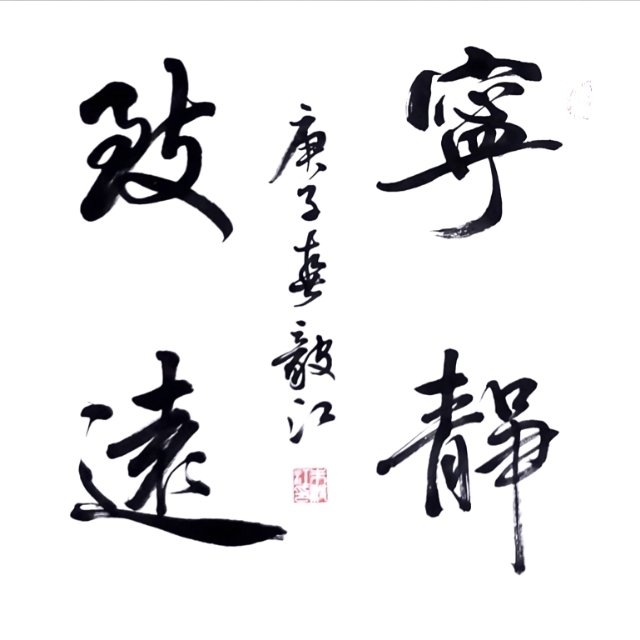 寧靜
致遠
庚子春毅江